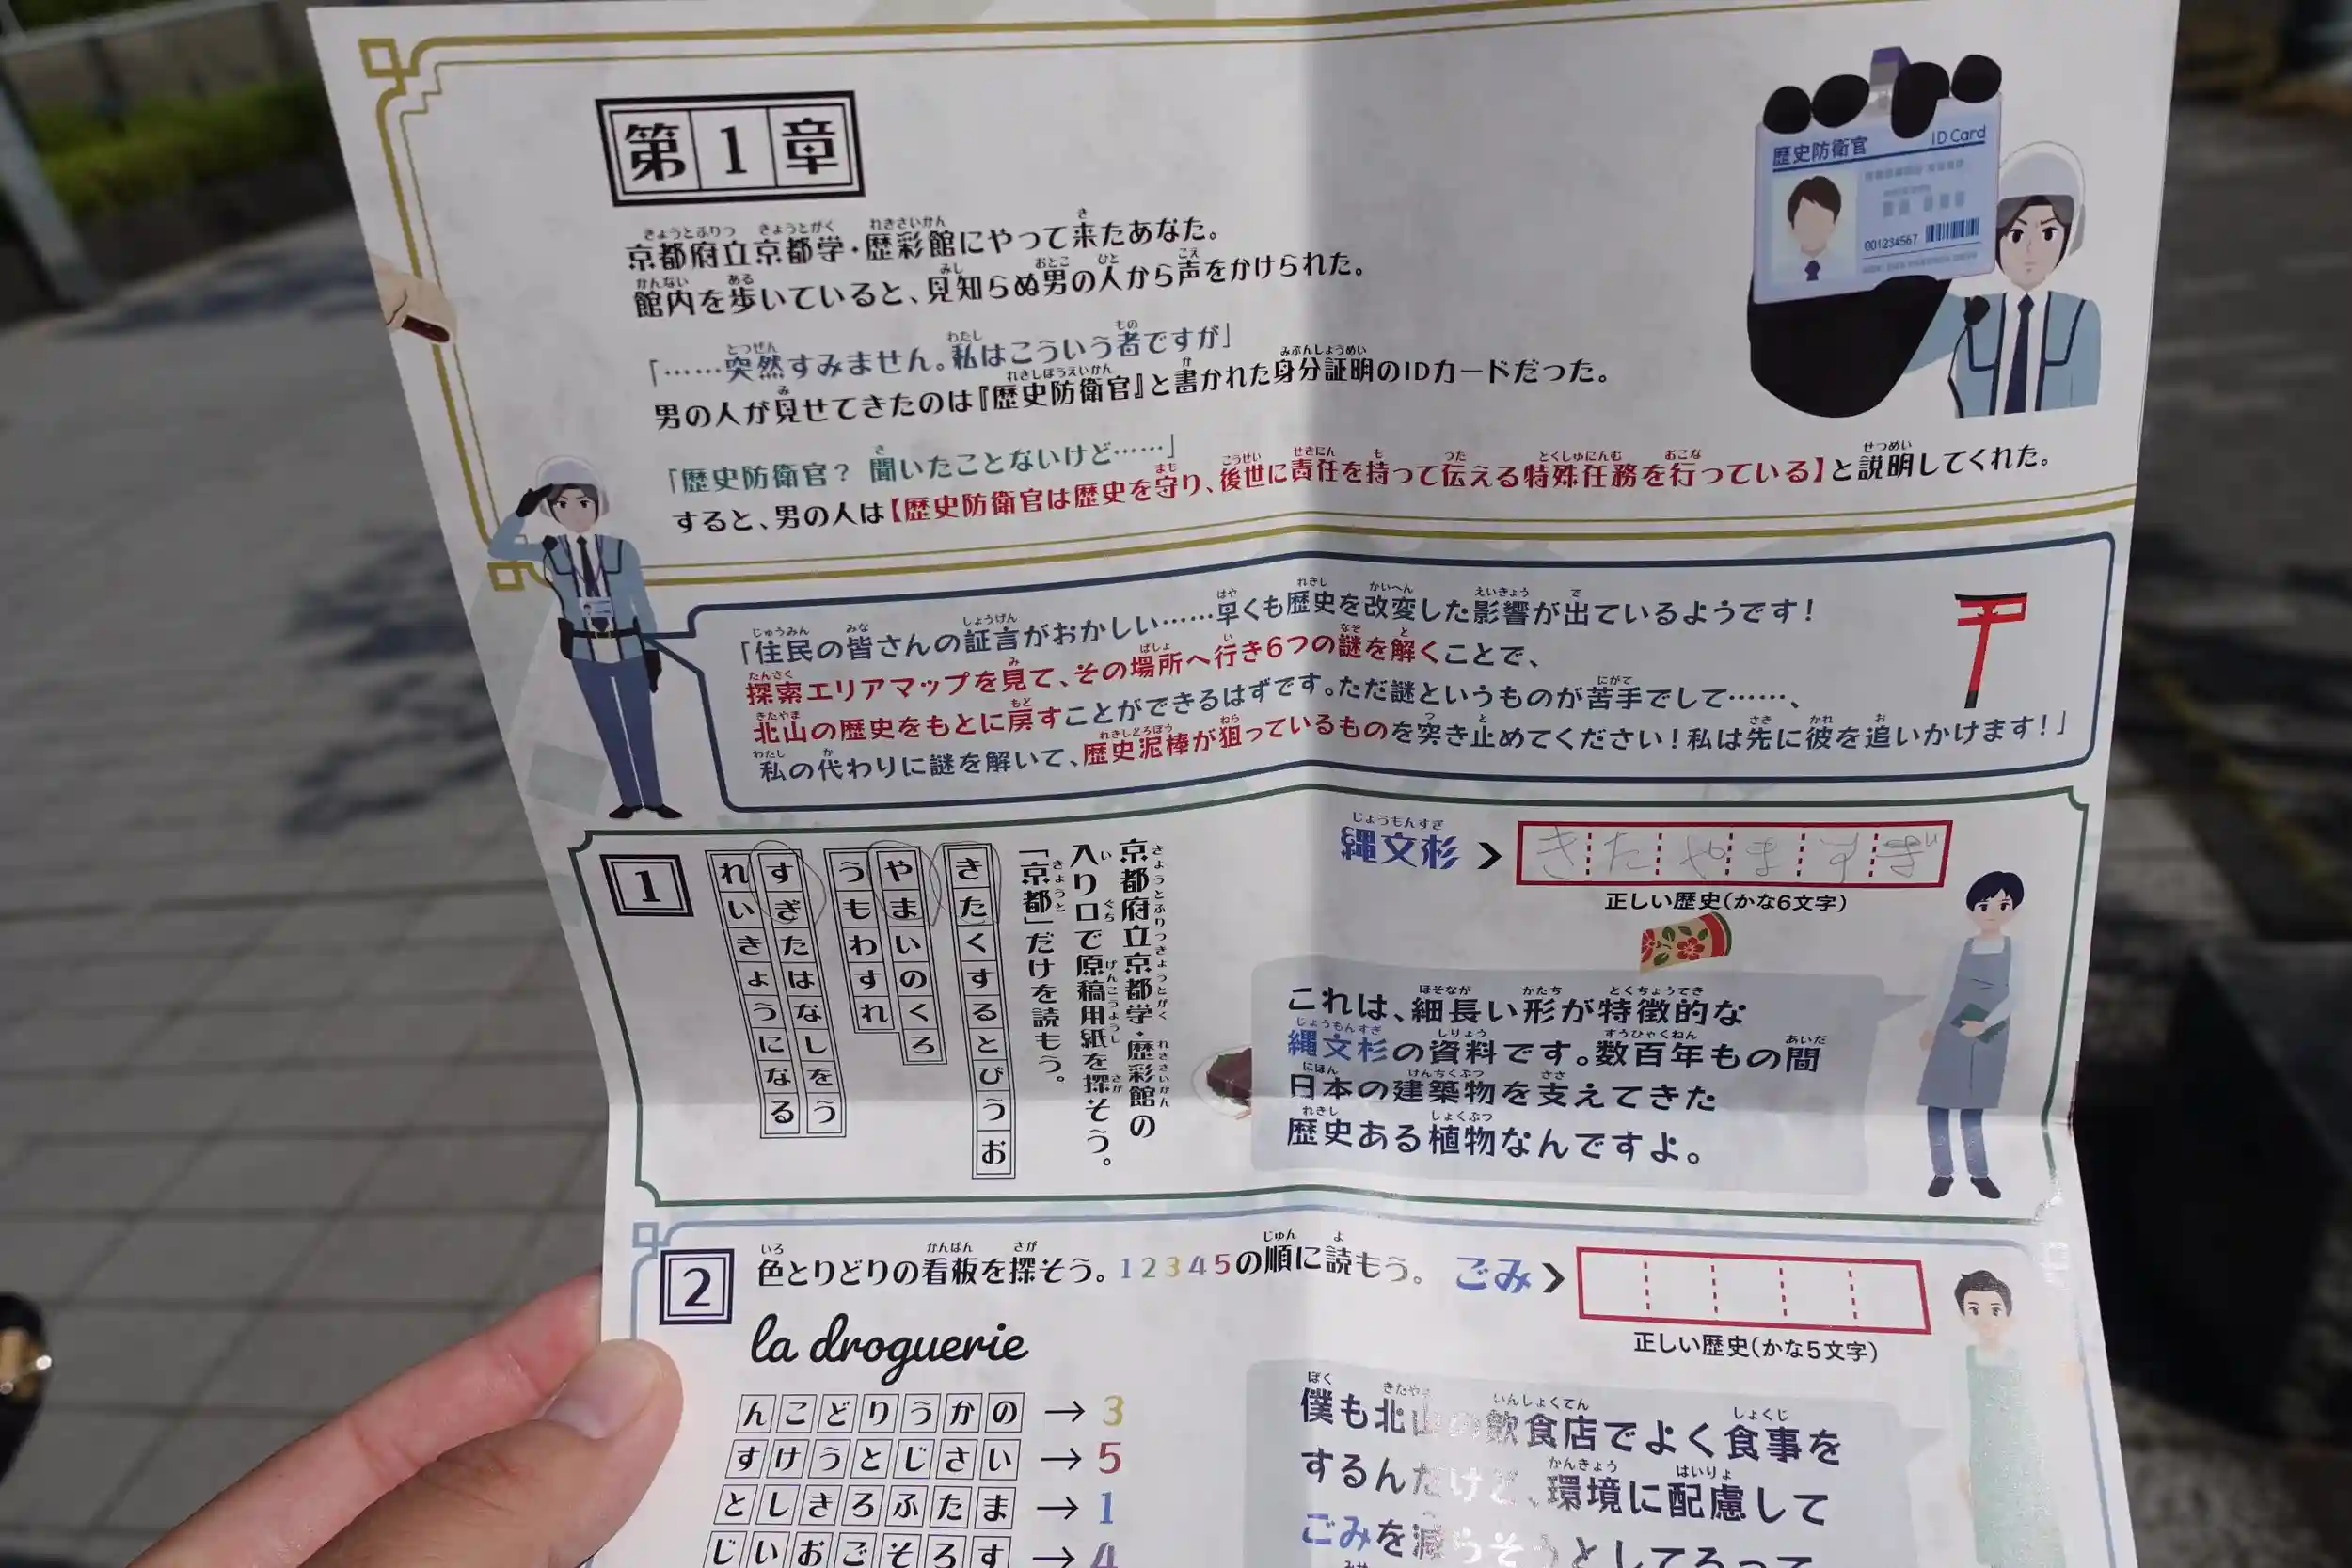 第1章
歴史防衛官 ID Card
001234567
京都府立京都学・歴彩館にやって来たあなた。
館内を歩いていると、見知らぬ男の人から声をかけられた。
「……突然すみません。私はこういう者ですが」
男の人が見せてきたのは『歴史防衛官』と書かれた身分証明のIDカードだった。
「歴史防衛官？ 聞いたことないけど……」
すると、男の人は【歴史防衛官は歴史を守り、後世に責任を持って伝える特殊任務を行っている】と説明してくれた。
「住民の皆さんの証言がおかしい……早くも歴史を改変した影響が出ているようです！
探索エリアマップを見て、その場所へ行き6つの謎を解くことで、
北山の歴史をもとに戻すことができるはずです。ただ謎というものが苦手でして……、
私の代わりに謎を解いて、歴史泥棒が狙っているものを突き止めてください！私は先に彼を追いかけます！」
1
京都府立京都学・歴彩館の
入り口で原稿用紙を探そう。
「京都」だけを読もう。
きたくするとびうお
やまいのくろ
うもわすれ
すぎたはなしをう
れいきょうになる
縄文杉 > きたやますぎ
正しい歴史(かな6文字)
これは、細長い形が特徴的な
縄文杉の資料です。数百年もの間
日本の建築物を支えてきた
歴史ある植物なんですよ。
2
色とりどりの看板を探そう。12345の順に読もう。
ごみ >
正しい歴史(かな5文字)
la droguerie
んこどりうかの → 3
すけうとじさい → 5
としきろふたま → 1
じいおごそろす → 4
僕も北山の飲食店でよく食事を
するんだけど、環境に配慮して
ごみを減らそうとしてるって